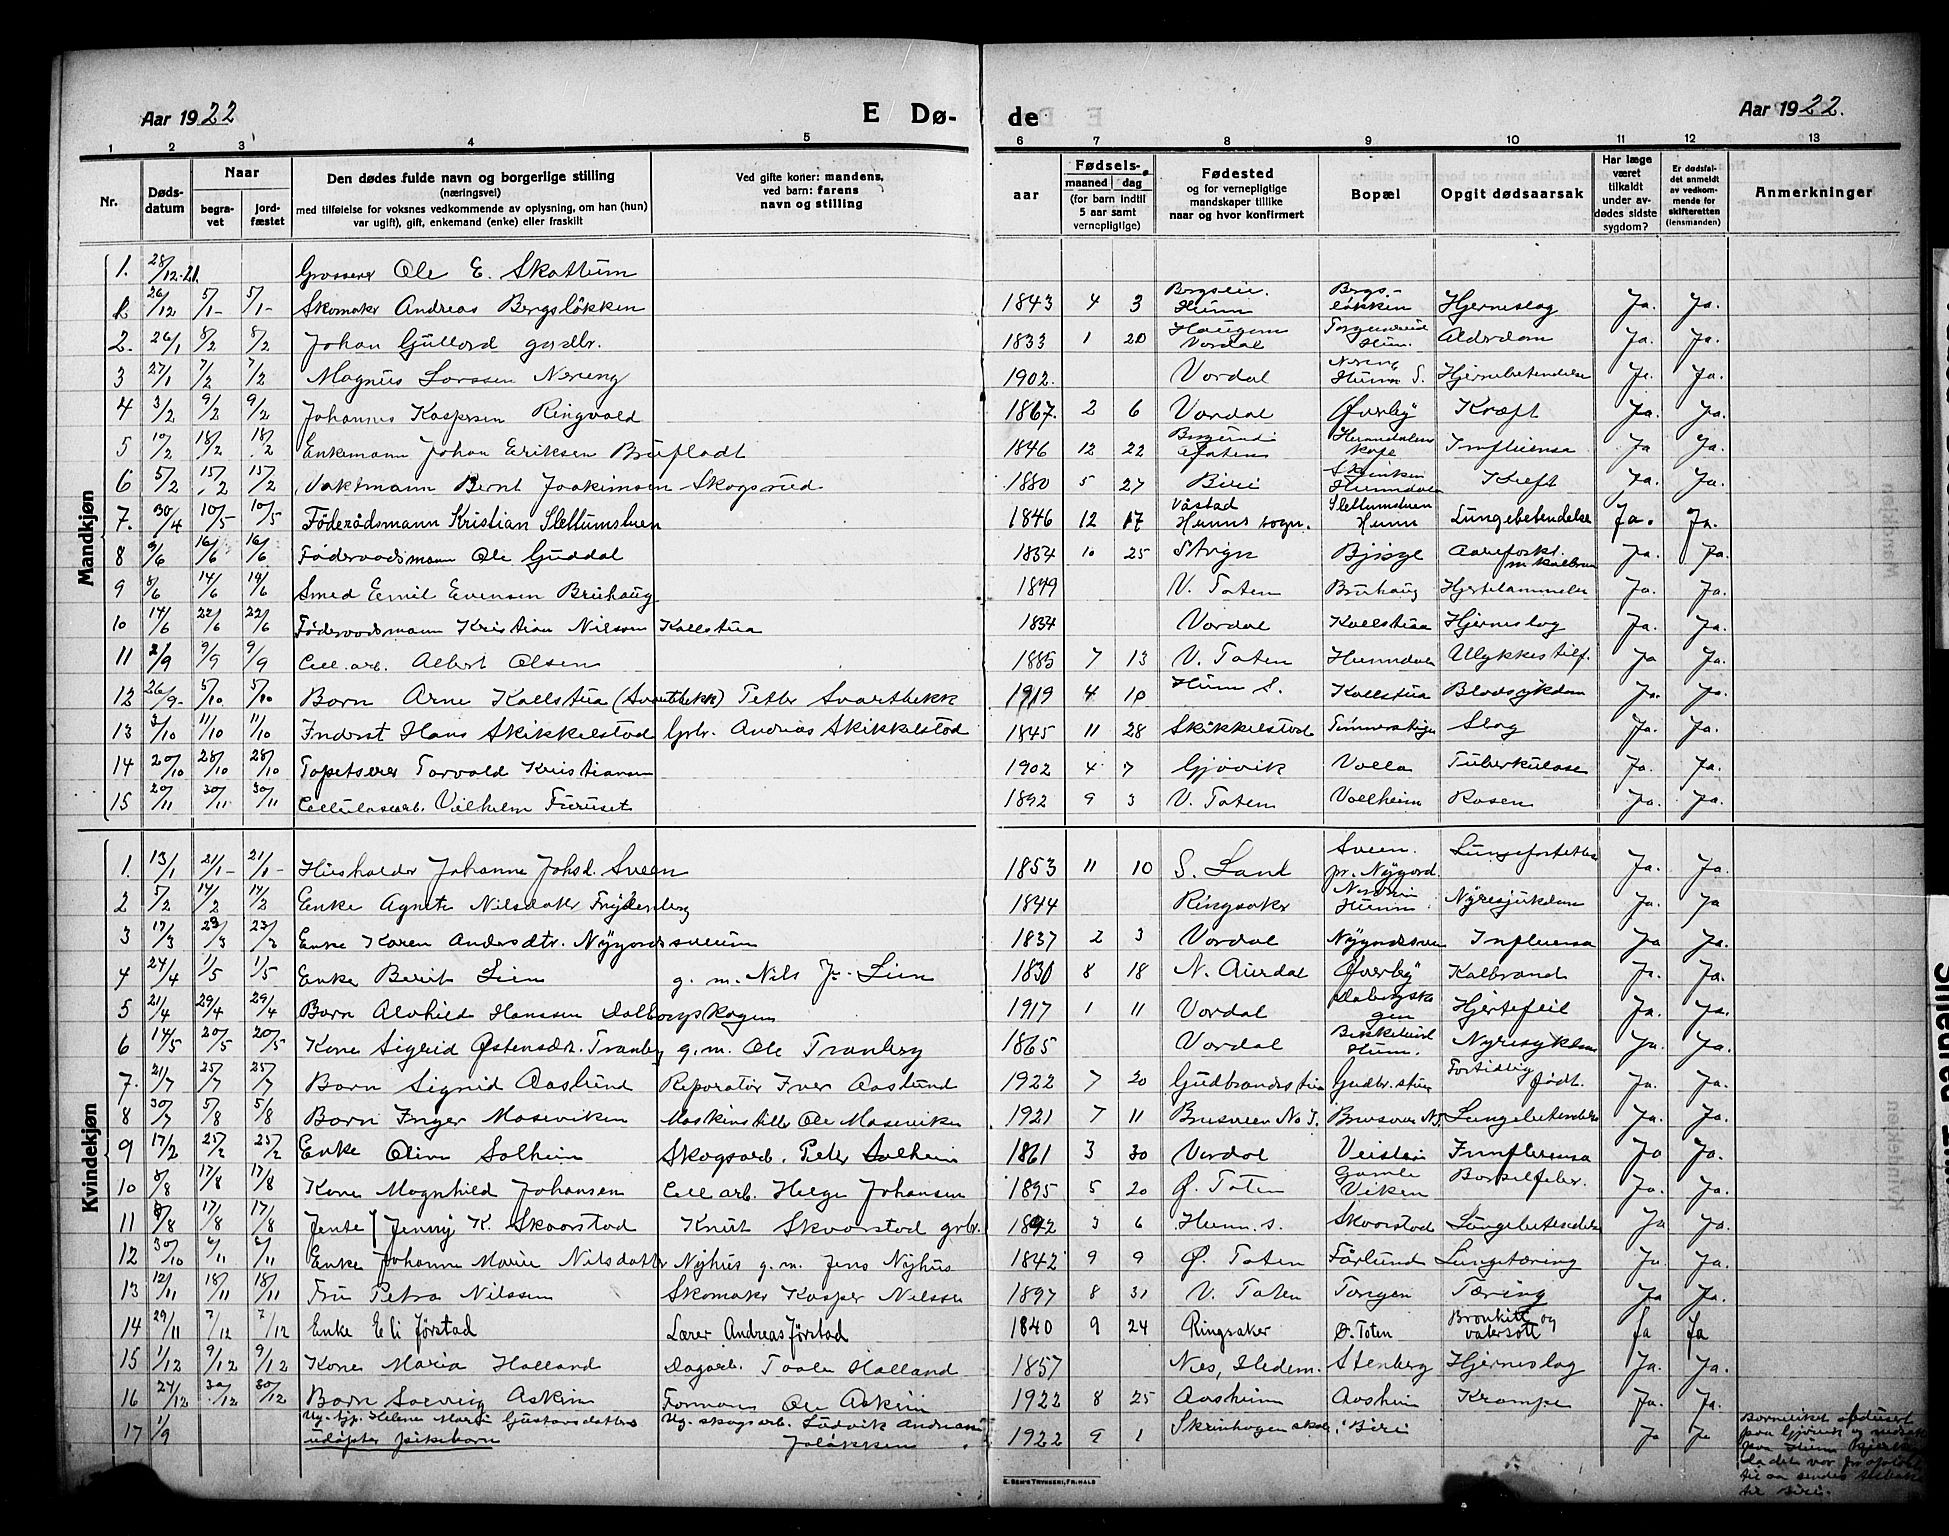 Aar 1922 E Dø- de Aar 1922.
1 2 3 4 5 6 7 8 9 10 11 12 13
Nr. Døds-datum Naar begra-vet jord-fæstet Den dødes fulde navn og borgerlige stilling (næringsvei) med tilføielse for voksnes vedkommende av oplysning, om han (hun) var ugift), gift, enkemand (enke) eller fraskilt Ved gifte koner: mandens, ved barn: farens navn og stilling aar Fødsels- maaned dag (for barn indtil 5 aar samt vernepligtige) Fødested og for vernepligtige mandskaper tillike naar og hvor konfirmert Bopæl Opgit dødsaarsak Har læge været tilkaldt under av-dødes sidste sygdom? Er dødsfal-det anmeldt av vedkom-mende for skifteretten (lensmanden) Anmerkninger
Mandkjøn
1. 28/12-21. Grosserer Ole E. Skattum
1. 26/12 5/1- 5/1- Skomaker Andreas Bergsløkken 1843 4 3 Hunn Bergs-løkken Hjerneslag Ja. Ja.
2. 26/1 8/2 8/2 Johan Gullord gardbr. 1833 1 20 Haugen Vardal Hunn. Alderdom Ja. Ja.
3 27/1 7/2 7/2 Magnus Larssen Nereng 1902. Vardal Nereng Hunn S. Hjernebetendelse Ja. Ja.
4 3/2 9/2 9/2 Johannes Kaspersen Ringvold 1867. 2 6 Vardal Øverby Kræft Ja. Ja.
5 10/2 18/2 18/2 Enkemann Johan Eriksen Brufladt 1846 12 22 Influensa Ja Ja.
6 5/2 15/2 15/2 Vaktmann Bernt Joakimsen Skogsrud 1880 5 27 Biri Hunndalen Kreft Ja. Ja.
7. 30/4 10/5 10/5 Føderådsmann Kristian Slettumstuen 1846 12 17 Våstad Hunns sogn. Slettumstuen Hunn Lungebetendelse Ja. Ja.
8 9/6 16/6 16/6 Føderaadsmann Ole Guddal 1834 10 25 Aareforkl. m kolbran Ja. Ja.
9 8/6 14/6 14/6 Smed Emil Evensen Bruhaug 1849 V. Toten Bruhaug Hjertelammelse Ja. Ja.
10 14/6 22/6 22/6 Føderaadsmann Kristian Nilsen Kallstua 1834 Vardal Kallstua Hjerneslag Ja. Ja.
11 2/9 9/9 9/9 Cell. arb. Albert Olsen 1885 7 13 V. Toten Hunndalen Ulykkestilf. Ja Ja.
12 26/9- 5/10 5/10 Barn Arne Kallstua (Svartbekk) Petter Svartbekk 1919 4 10 Hunn S. Kallstua Blodsykdom Ja. Ja.
13 3/10 11/10 11/10 Inderst Hans Skikkelstad Grbr. Andreas Skikkelstad 1845 11 28 Skikkelstad Slag Ja. Ja.
14 20/10 28/10 28/10 Tapetserer Torvald Kristiansen 1902 4 7 Gjøvik Volla Tuberkulose Ja. Ja.
15 20/11 30/11 30/11 Cellulosearb. Vilhelm Furuset 1892 9 3 V. Toten Vollheim Rosen Ja. Ja.
Kvindekjøn
1. 13/1 21/1- 21/1- Husholder Johanne Johsd. Sveen 1853 11 10 S. Land Sveen. pr. Nygord Ja. Ja.
2 5/2 14/2 14/2 Enke Agnete Nilsdatter Frydenberg 1844 Ringsaker Hunn Nyresjukdom Ja. Ja
3 17/3 23/3 23/3 Enke Karen Andersdtr. Nygordssveen 1837 2 3 Vardal Nygordssveen Influensa Ja Ja.
4 24/4 1/5 1/5 Enke Berit Lien g. m. Nils J. Lien 1830 8 18 N. Aurdal Øverby Kolbrand Ja. Ja.
5 21/4 29/4 29/4 Barn Alvhild Hanssen Dalborgskogen 1917 1 11 Vardal Hjertefeil Ja. Ja.
6 14/5 20/5 20/5 Kone Sigrid Østensdtr. Tranberg g. m. Ole Tranberg 1865 Vardal Hunn. Nyresykdom Ja. Ja.
7. 21/7 25/7 25/7 Barn Signid Aaslund Reparatør Iver Aaslund 1922 7 20 Gudbrandsstua Gudbr.stua Fortidlig født. Ja. Ja.
8 30/7 5/8 5/8 Barn Inger Moseviken Maskinstiller Ole Moseviken 1921 7 11 Brusveen N. T. Brusveen N.T. Lungebetendelse Ja. Ja.
9 17/2 25/2 25/2 Enke Oline Solheim Skogsarb. Peter Solheim 1861 3 30 Vardal Influensa Ja Ja.
10 8/8 17/8 17/8 Kone Magnhild Johansen Cell arb. Helge Johansen 1895 5 20 Ø. Toten Gamle Viken Barselfeber. Ja. Ja.
11 8/8 17/8 17/8 Jente Jenny K. Skoorstad Knut Skoorstad grbr. 1892 3 6 Hunn. s. Skoorstad Lungebetendelse Ja Ja.
12 30/10 6/11 6/11 Enke Johanne Marie Nilsdatter Nyhus g. m. Jens Nyhus 1842 9 9 Ø. Toten Førlund Lungetæring Ja. Ja.
13 12/11 18/11 18/11 Fru Petra Nilssen Skomaker Kasper Nilssen 1897 8 31 V. Toten Tongen Tæring Ja Ja.
14 29/11 7/12 7/12 Enke Eli Jørstad Lærer Andreas Jørstad 1840 9 24 Ringsaker Ø. Toten Bronkitt og vatersott Ja Ja
15 1/12 9/12 9/12 Kone Maria Holland Dagarb. Toole Holland 1857 Nes, Hedem. Stenberg Hjerneslag Ja. Ja.
16 24/12 30/12 30/12 Barn Solveig Askim Formann Ole Askim 1922 8 25 Aasheim Aasheim Krampe Ja. Ja.
17 1/9 Ug. tjp. Helene Marie Gustavsdatters udøpte pikebarn Ug. skogsarb. Ludvik Andreas Jøløkken 1922 9 1 Biri Ja Ja Barneliket obdusert paa Gjøvik og nedsat paa Hunn da det var for til aa sendes tilbake til Biri.
E. SEM'S TRYKKERI, FR.HALD